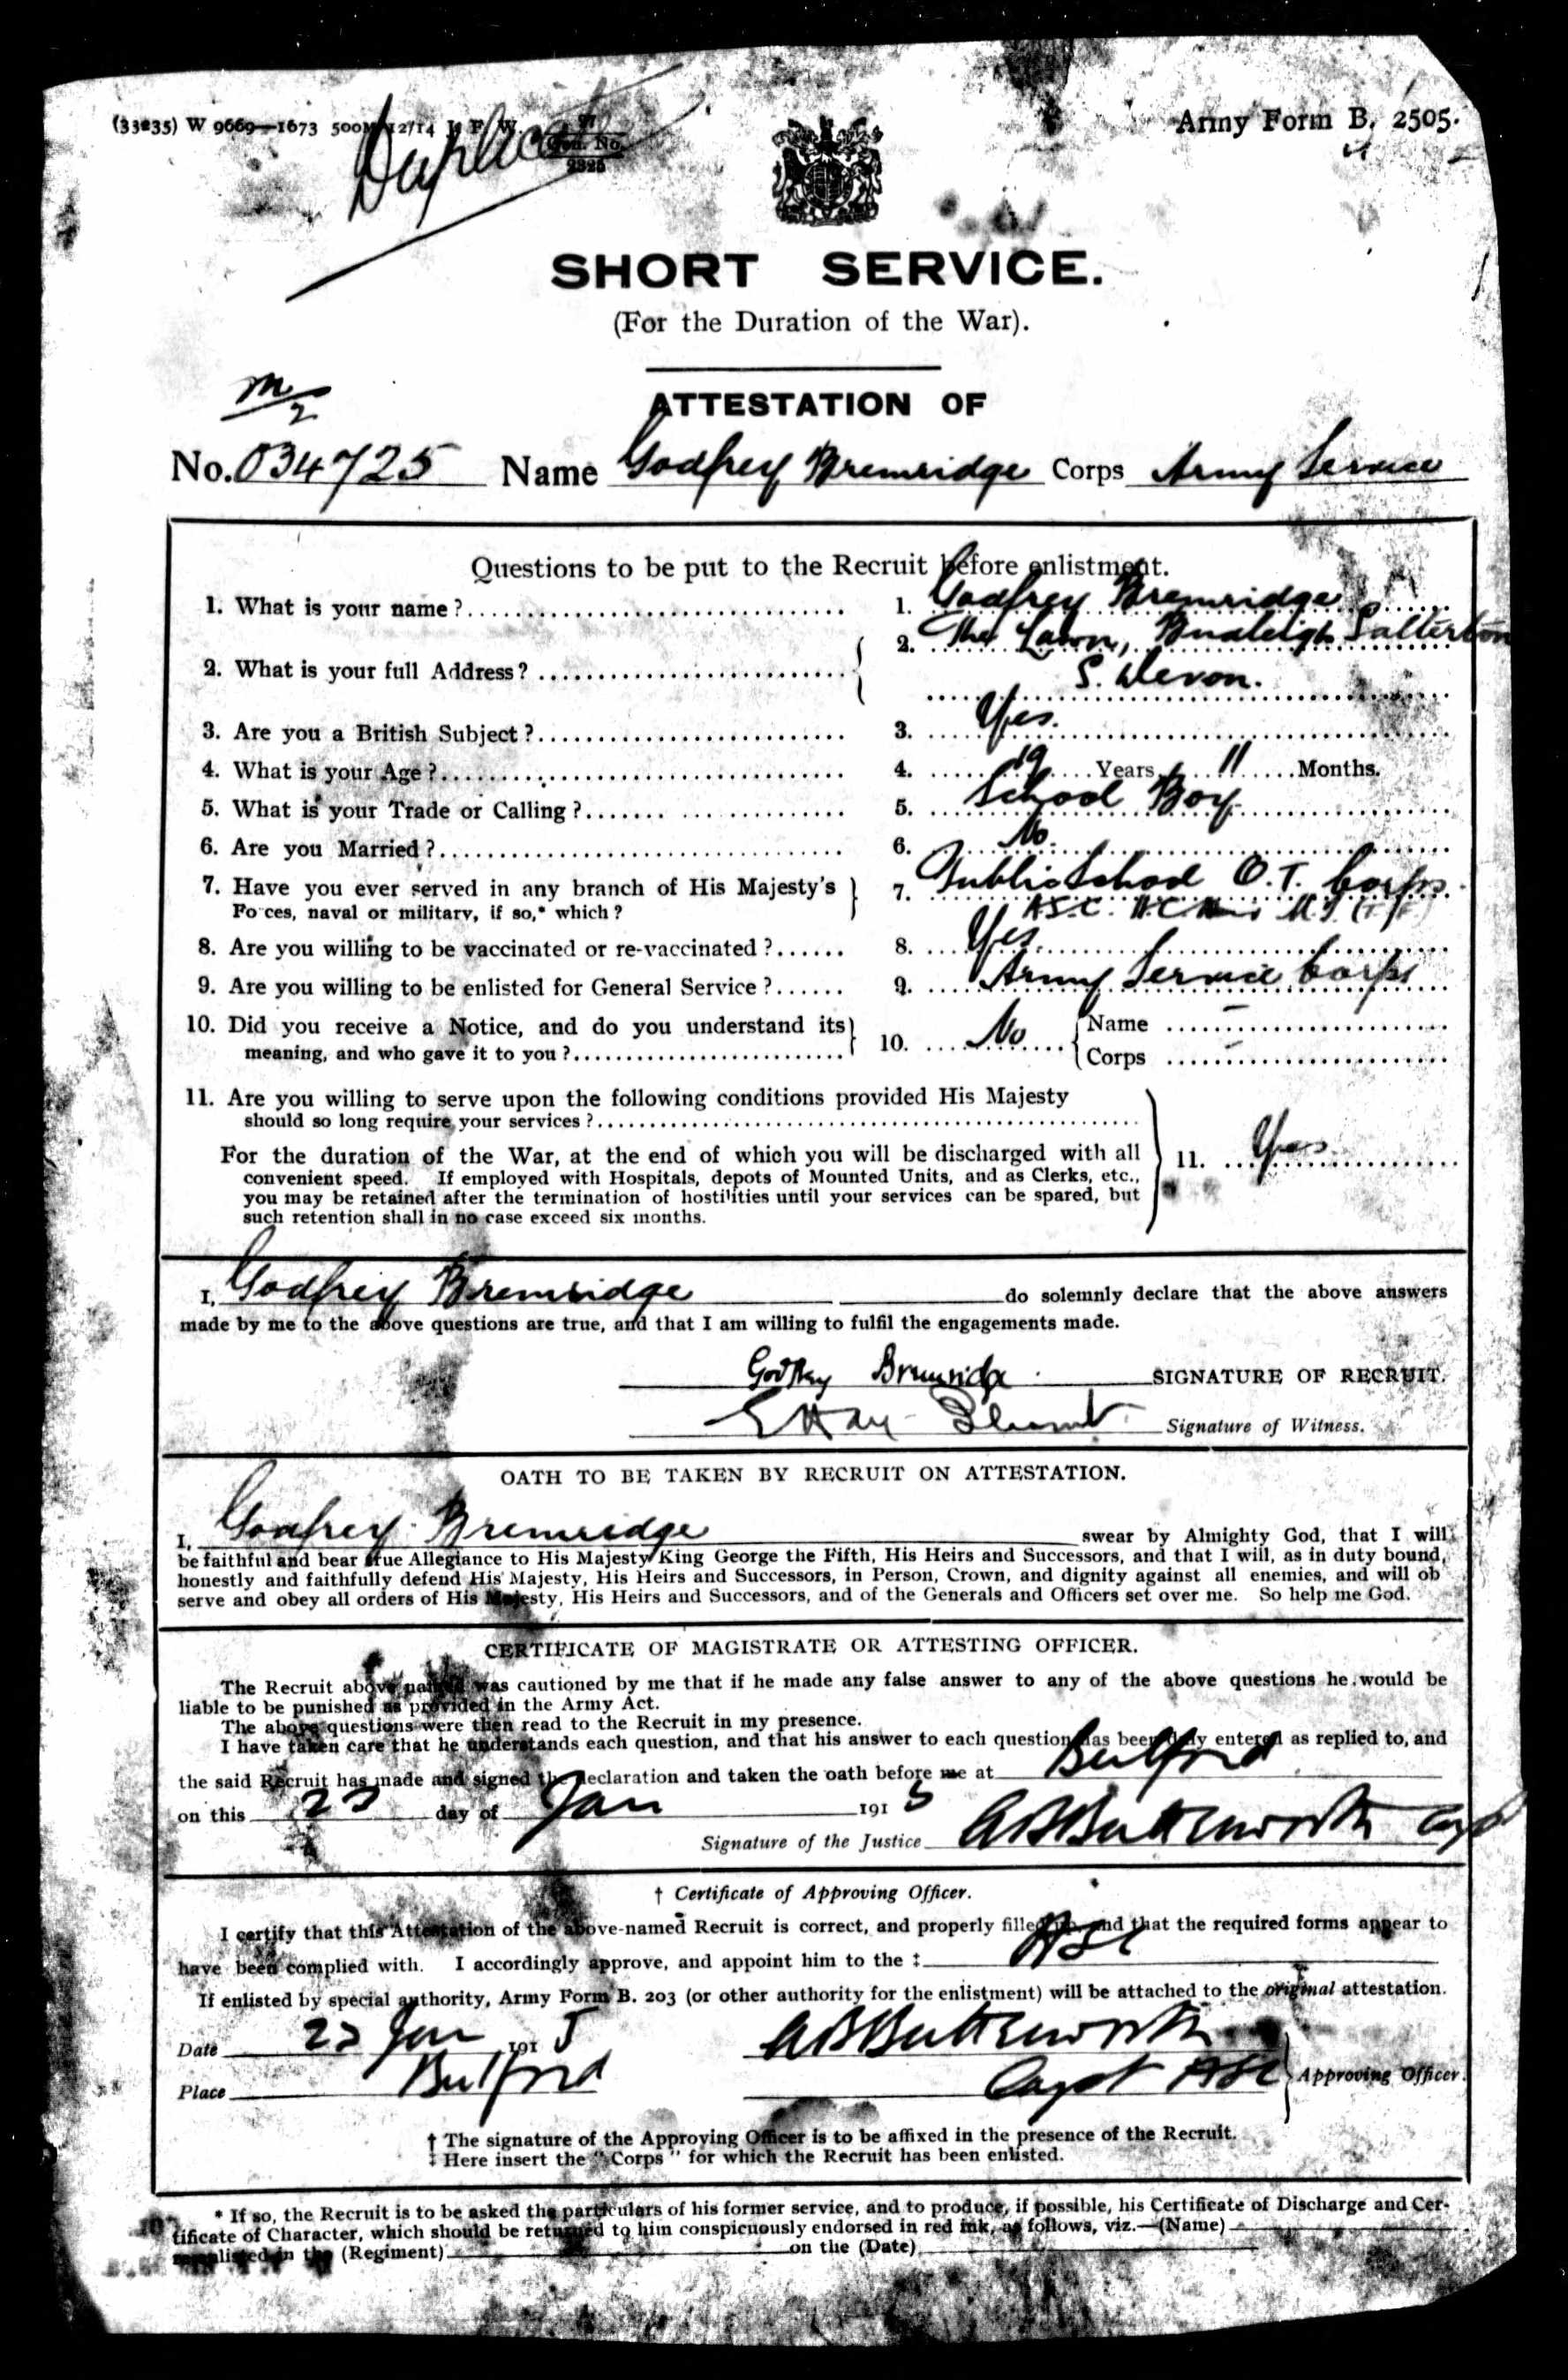 (33235) W 9669—1673 500M 12/14 H F W. Gen. No. Army Form B. 2505.
SHORT SERVICE.
(For the Duration of the War).
M/2
ATTESTATION OF
No. 034725 Name Godfrey Bremridge Corps Army Service
Questions to be put to the Recruit before enlistment.
1. What is your name? 1. Godfrey Bremridge
2. What is your full Address? 2. The Lawn, Budleigh Salterton
S. Devon.
3. Are you a British Subject? 3. Yes.
4. What is your Age? 4. 19 Years 11 Months.
5. What is your Trade or Calling? 5. School Boy.
6. Are you Married? 6. No.
7. Have you ever served in any branch of His Majesty's 7. Public School O.T. Corps.
Forces, naval or military, if so,* which? A.S.C.
8. Are you willing to be vaccinated or re-vaccinated? 8. Yes.
9. Are you willing to be enlisted for General Service? 9. Army Service Corps
10. Did you receive a Notice, and do you understand its 10. No Name –
meaning, and who gave it to you? Corps –
11. Are you willing to serve upon the following conditions provided His Majesty
should so long require your services?
For the duration of the War, at the end of which you will be discharged with all 11. Yes
convenient speed. If employed with Hospitals, depots of Mounted Units, and as Clerks, etc.,
you may be retained after the termination of hostilities until your services can be spared, but
such retention shall in no case exceed six months.
I, Godfrey Bremridge do solemnly declare that the above answers
made by me to the above questions are true, and that I am willing to fulfil the engagements made.
Godfrey Bremridge SIGNATURE OF RECRUIT.
Signature of Witness.
OATH TO BE TAKEN BY RECRUIT ON ATTESTATION.
I, Godfrey Bremridge swear by Almighty God, that I will
be faithful and bear true Allegiance to His Majesty King George the Fifth, His Heirs and Successors, and that I will, as in duty bound,
honestly and faithfully defend His Majesty, His Heirs and Successors, in Person, Crown, and dignity against all enemies, and will ob
serve and obey all orders of His Majesty, His Heirs and Successors, and of the Generals and Officers set over me. So help me God.
CERTIFICATE OF MAGISTRATE OR ATTESTING OFFICER.
The Recruit above named was cautioned by me that if he made any false answer to any of the above questions he would be
liable to be punished as provided in the Army Act.
The above questions were then read to the Recruit in my presence.
I have taken care that he understands each question, and that his answer to each question has been duly entered as replied to, and
the said Recruit has made and signed the declaration and taken the oath before me at Bulford
on this day of Jan 1915
Signature of the Justice A B Butterworth Capt
† Certificate of Approving Officer.
I certify that this Attestation of the above-named Recruit is correct, and properly filled up, and that the required forms appear to
have been complied with. I accordingly approve, and appoint him to the ‡ ASC
If enlisted by special authority, Army Form B. 203 (or other authority for the enlistment) will be attached to the original attestation.
Date Jan 1915 A B Butterworth
Place Bulford Capt ASC Approving Officer.
† The signature of the Approving Officer is to be affixed in the presence of the Recruit.
‡ Here insert the "Corps" for which the Recruit has been enlisted.
* If so, the Recruit is to be asked the particulars of his former service, and to produce, if possible, his Certificate of Discharge and Cer-
tificate of Character, which should be returned to him conspicuously endorsed in red ink, as follows, viz.—(Name)
in the (Regiment) on the (Date)